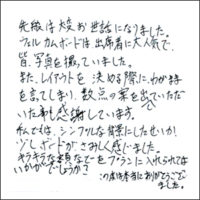 先般は大変お世話になりました。
ウェルカムボードは出席者に大人気で、
皆、写真を撮っていました。
また、レイアウトを決める際に、わが侭
を言ってしまい、数点の案を出していただ
いた事も感謝しています。
私んでは、シンプルな背景にしたせいか、
少しボードがさみしく感じました。
キラキラな素材などをプランに入れられては
いかがでしょうか?
この度は本当にありがとうござい
ました。